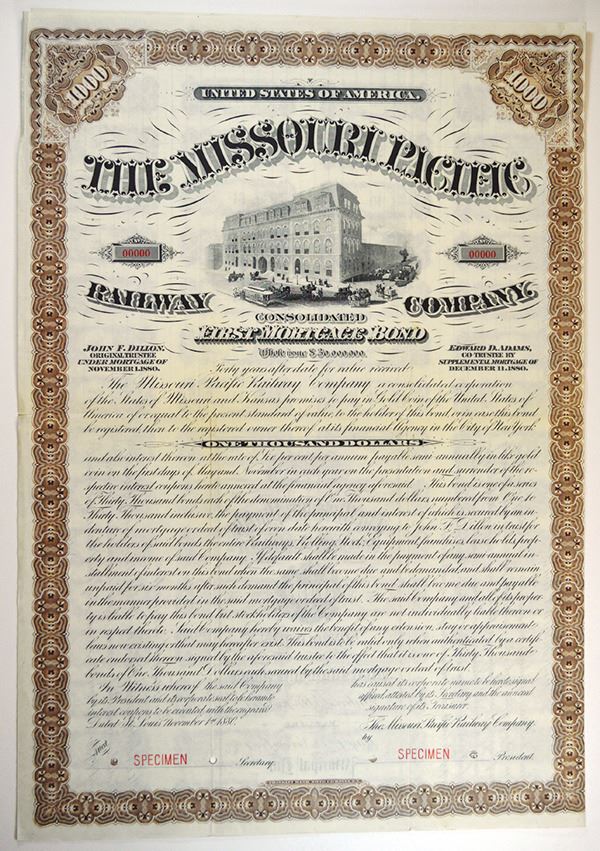 1000 1000
UNITED STATES OF AMERICA.
THE MISSOURI PACIFIC
00000 00000
RAILWAY COMPANY.
CONSOLIDATED
FIRST MORTGAGE BOND
Whole issue $30,000,000.
JOHN F. DILLON,
ORIGINAL TRUSTEE
UNDER MORTGAGE OF
NOVEMBER 1, 1880.
EDWARD D. ADAMS,
CO-TRUSTEE BY
SUPPLEMENTAL MORTGAGE OF
DECEMBER 11, 1880.
Forty years after date for value received
The Missouri Pacific Railway Company a consolidated corporation
of the States of Missouri and Kansas promises to pay in Gold Coin of the United States of
America of or equal to the present standard of value, to the holder of this bond or in case this bond
be registered then to the registered owner thereof at its financial Agency in the City of New York
ONE THOUSAND DOLLARS
and also interest thereon at the rate of Six per cent per annum payable semi annually in like gold
coin on the first days of May and November in each year on the presentation and surrender of the re-
spective interest coupons hereto annexed at the financial agency aforesaid. This bond is one of a series
of Thirty Thousand bonds each of the denomination of One Thousand dollars, numbered from One to
Thirty Thousand inclusive, the payment of the principal and interest of which is secured by an in-
denture of mortgage or deed of trust of even date herewith conveying to John F. Dillon in trust for
the holders of said bonds the entire Railways, Rolling Stock, Equipment, franchises, leaseholds, prop-
erty and income of said Company. If default shall be made in the payment of any semi annual in-
stallment of interest on this bond when the same shall become due and be demanded, and shall remain
unpaid for six months after such demand the principal of this bond, shall become due and payable
in the manner provided in the said mortgage or deed of trust. The said Company and all of its proper-
ty is liable to pay this bond but stockholders of the Company are not individually liable thereon or
in respect thereto. Said company hereby waives the benefit of any extension, stay or appraisement
laws now existing or that may hereafter exist. This bond is to be valid only when authenticated by a certifi-
cate endorsed thereon signed by the aforesaid trustee to the effect that it is one of Thirty Thousand
bonds of One Thousand Dollars each secured by the said mortgage or deed of trust.
In Witness whereof the said Company
by its President and its corporate seal to be hereto
interest coupons to be executed with the engraved
Dated St. Louis November 1st 1880.
has caused its corporate name to be hereto signed
affixed, attested by its Secretary and the annexed
signature of its Treasurer.
The Missouri Pacific Railway Company,
by
SPECIMEN Secretary. SPECIMEN President.